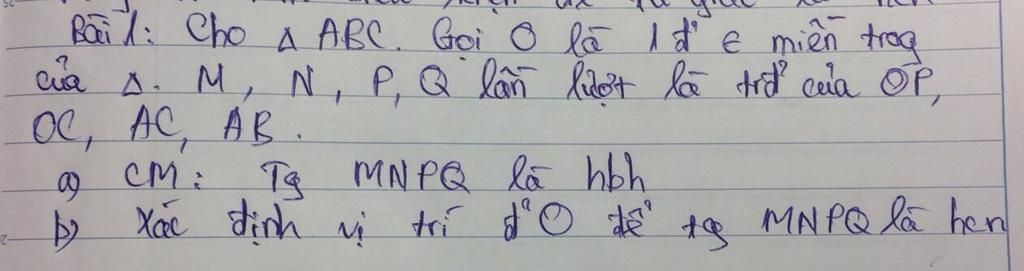 Bài 1: Cho Δ ABC. Gọi O là 1 đ' ∈ miền trog
của Δ. M, N, P, Q lần lượt là trđ' của OP,
OC, AC, AB.
a) CM: Tg MNPQ là hbh
b) Xác định vị trí đ' O để tg MNPQ là hcn